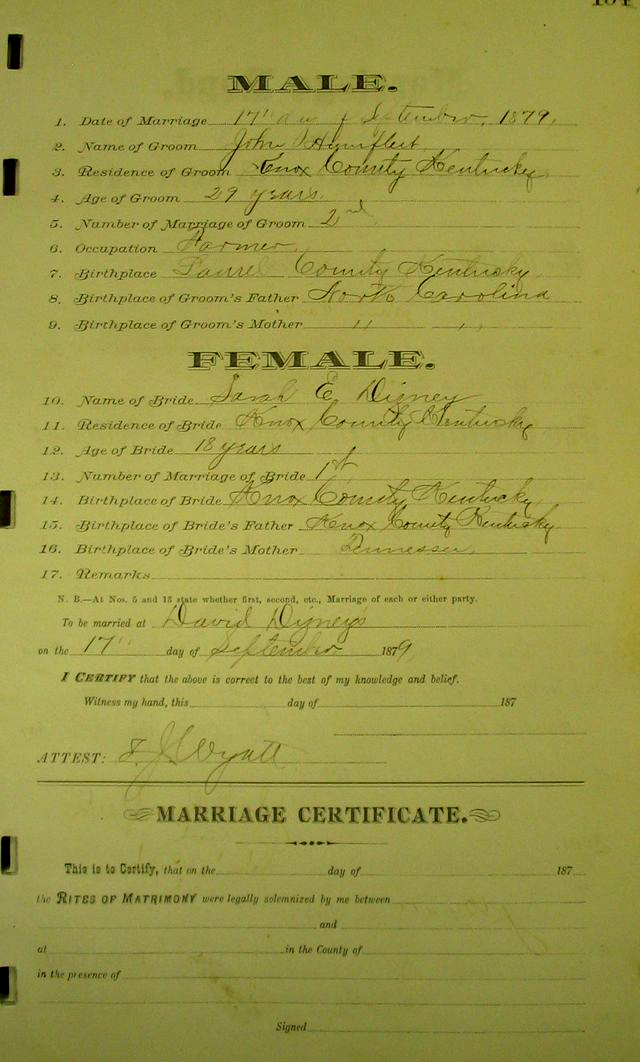 MALE.
1. Date of Marriage 17" day of September, 1879.
2. Name of Groom John Humfleet
3. Residence of Groom Knox County Kentucky
4. Age of Groom 29 years.
5. Number of Marriage of Groom 2nd
6. Occupation Farmer
7. Birthplace Laurel County Kentucky
8. Birthplace of Groom's Father North Carolina
9. Birthplace of Groom's Mother " "
FEMALE.
10. Name of Bride Sarah E Disney
11. Residence of Bride Knox County Kentucky
12. Age of Bride 18 years
13. Number of Marriage of Bride 1st
14. Birthplace of Bride Knox County, Kentucky
15. Birthplace of Bride's Father Knox County Kentucky
16. Birthplace of Bride's Mother Tennessee
17. Remarks
N. B.—At Nos. 5 and 13 state whether first, second, etc., Marriage of each or either party.
To be married at David Disney's
on the 17" day of September 1879
I CERTIFY that the above is correct to the best of my knowledge and belief.
Witness my hand, this day of 187
ATTEST: J. Wyatt
MARRIAGE CERTIFICATE.
This is to Certify, that on the day of 187
the RITES OF MATRIMONY were legally solemnized by me between
and
at in the County of
in the presence of
Signed